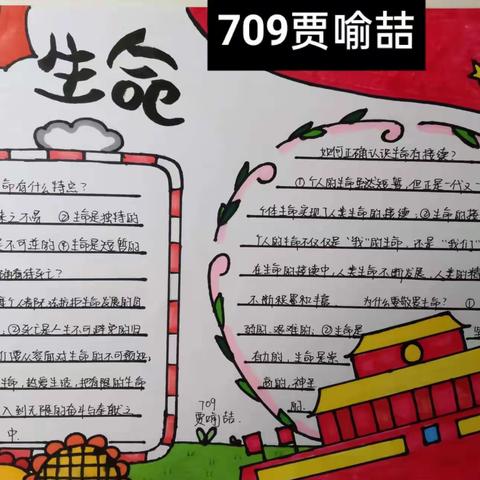 709贾喻喆
生命
命有什么特点？
来之不易 ②生命是独特的
是不可逆的④生命是短暂的
确看待死亡？
每个人都无法抗拒生命发展的自
，②死亡是人生不可避免的归
们要从容面对生命的不可预知，
生命，热爱生活，把有限的生命
入到无限的奋斗与奉献之
中.
709
贾喻喆.
如何正确认识生命有接续？
①个人的生命虽然短暂，但正是一代又一
个体生命实现了人类生命的接续；②生命的接
个人的生命不仅仅是“我”的生命，还是“我们”
在生命的接续中，人类生命不断发展，人类的精
不断积累和丰富. 为什么要敬畏生命？ ①
弱的、艰难的；②生命是 坚
有力的，生命是崇
高的，神圣
的.